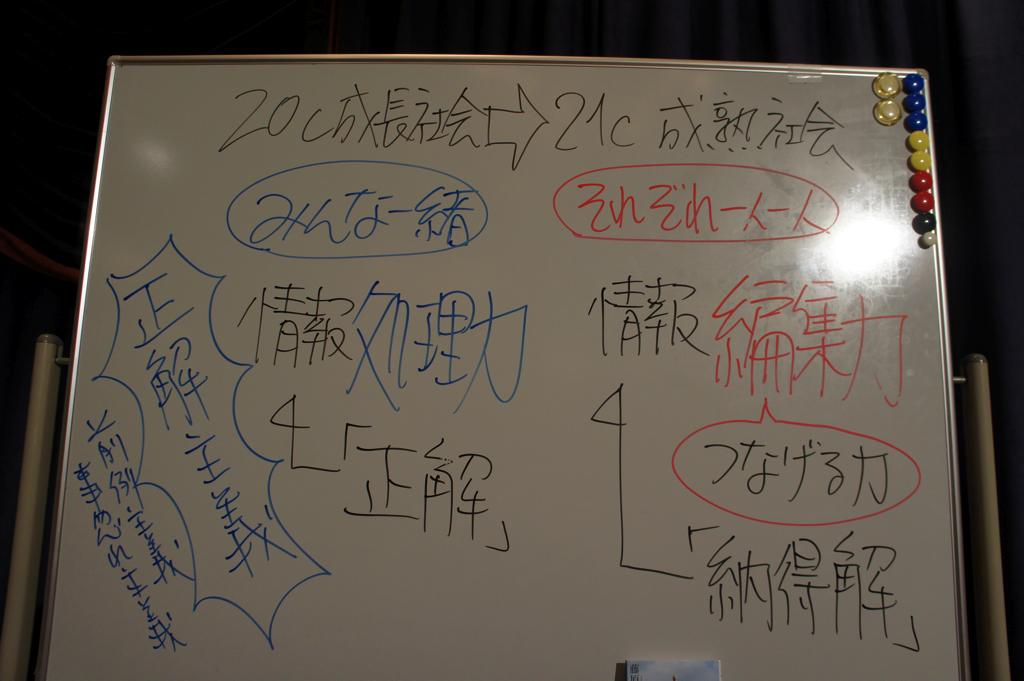 20c成長社会⇨21c 成熟社会
みんな一緒
それぞれ一人一人
情報処理力
情報編集力
「正解」
つなげる力
「納得解」
正解主義
前例主義
事なかれ主義
藤原